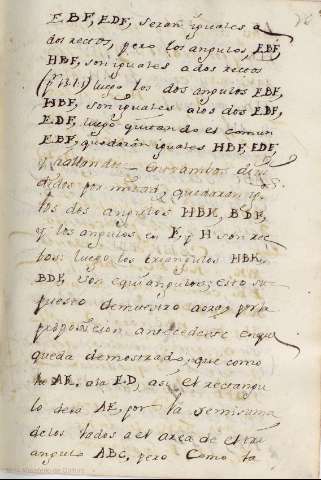 EBF, EDF, seran iguales a
dos rectos, pero los angulos, EBF,
HBF, son iguales a dos rectos
(p. 13. 1.) luego los dos angulos EBF,
HBF, son iguales alos dos EBF,
EDF, luego quitando el comun
EBF, quedaràn iguales HBF, EDF,
y hallandose entrambos divi
didos por mitad, quedaran ig.s
los dos angulos HBK, BDF,
y los angulos en F, y H son rec
tos: luego los triangulos HBK,
BDF, son equiangulos; esto su
puesto demuestro aora, por la
proposicion antecedente en que
queda demostrado, que como
la AE, ala ED, asi el rectangu
lo dela AE, por la semisuma
delos lados a el area de el tri
angulo ABC, pero como la